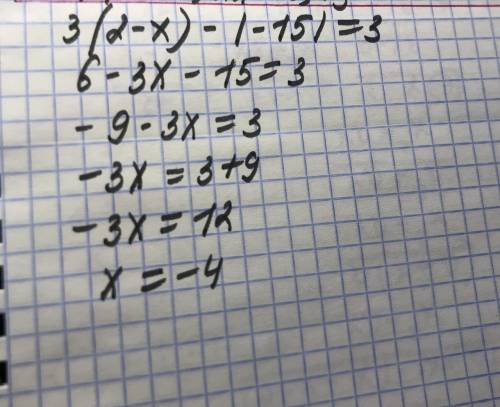 3(2-x)-|-15|=3
6-3x-15=3
-9-3x=3
-3x=3+9
-3x=12
x=-4